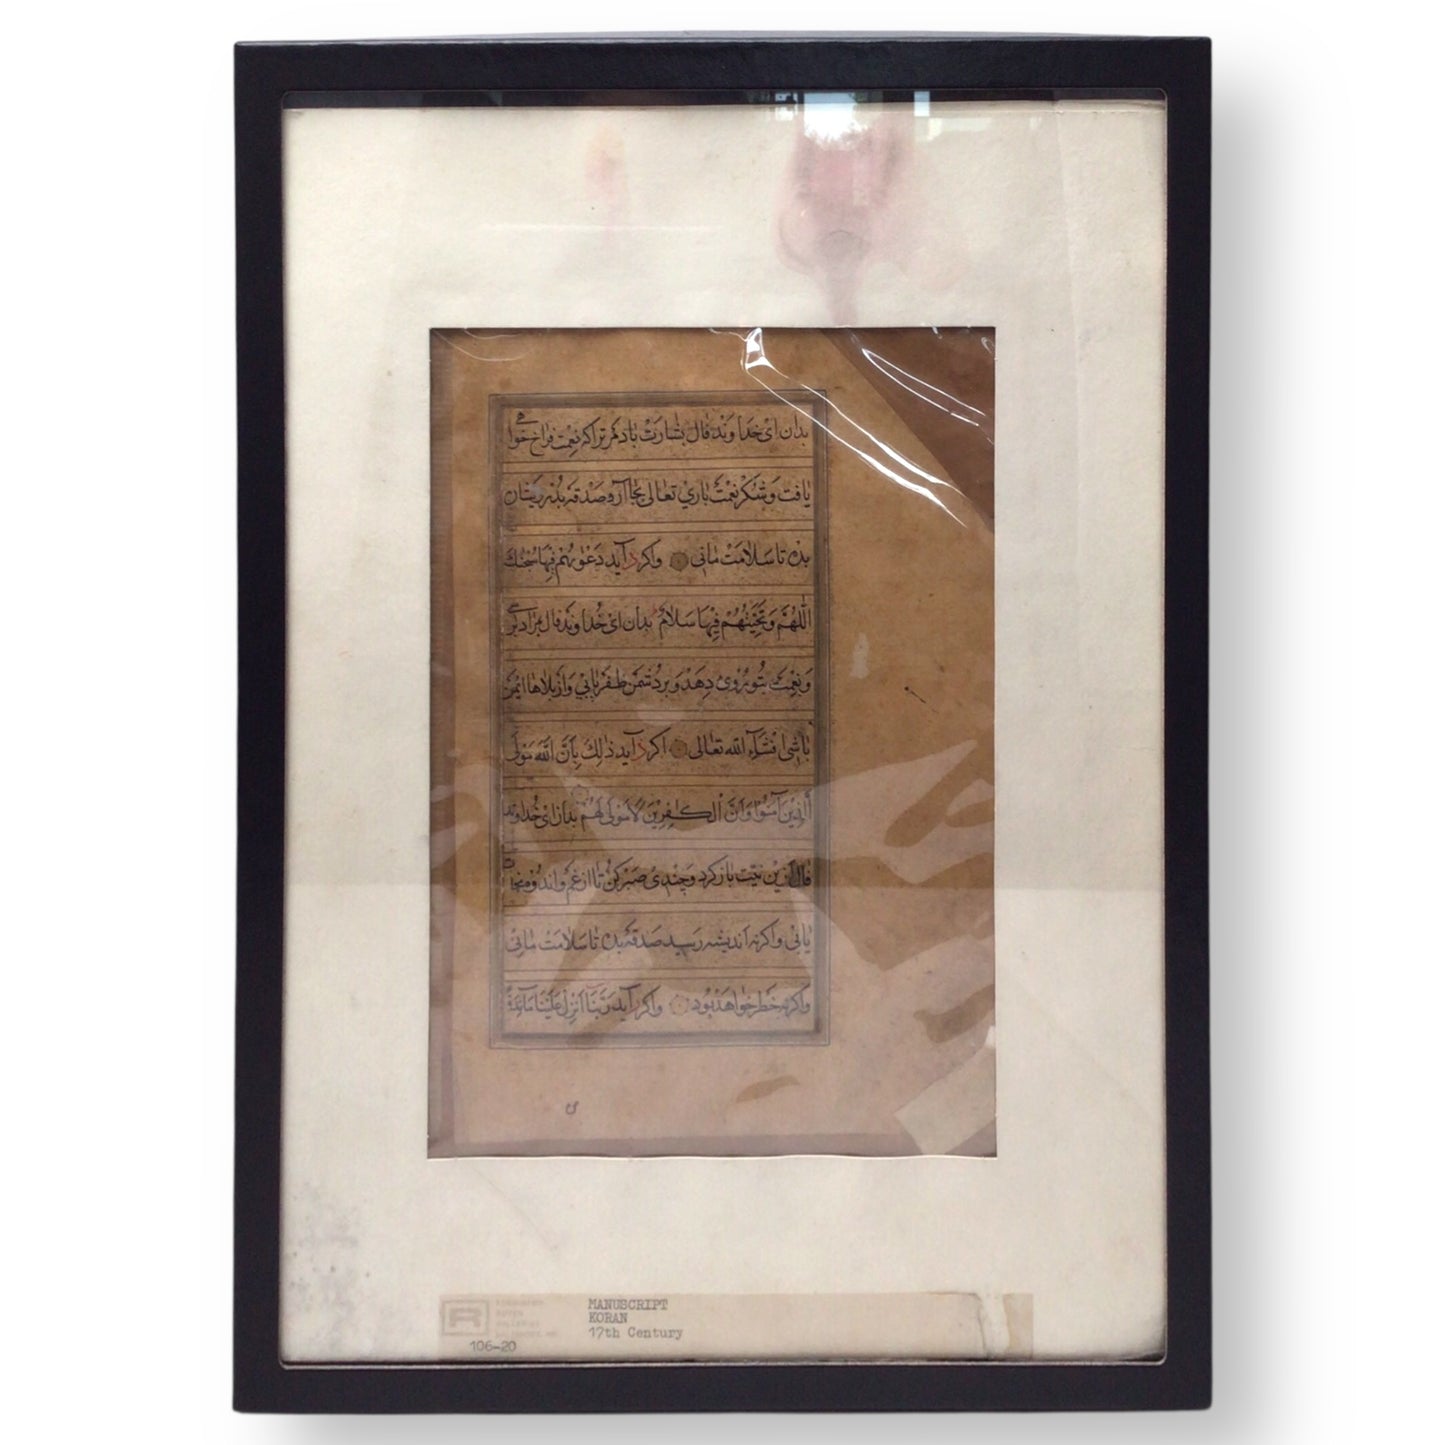 بدان ای خداوند فال بشارت باد مر ترا که نعمت فراخ خواهی
یافت و شکر نعمت باری تعالی بجا آر و صدقه بده رویشان
بده تا سلامت مانی واکر د آید دعویهم فیها سبحنك
اللهم وتحیتهم فیها سلام بدان ای خداوند فال مراد بر
و نعمت بتو روی دهد و بر دشمن ظفر یابی و از بلاها ایمن
باشی انشاء الله تعالی اکر د آید ذلك بان الله مولی
الذین آمنوا وان الكفرین لا مولی لهم بدان ای خداوند
فال ازین نیت باز کرد و چندی صبر کن تا از غم و اندوه نجات
یابی واکر نه اندیشه رسید صدقه بده تا سلامت مانی
واکر نه خطر خواهد بود واکر د آید ربنا انزل علینا مائدة
MANUSCRIPT
KORAN
17th Century
106-20